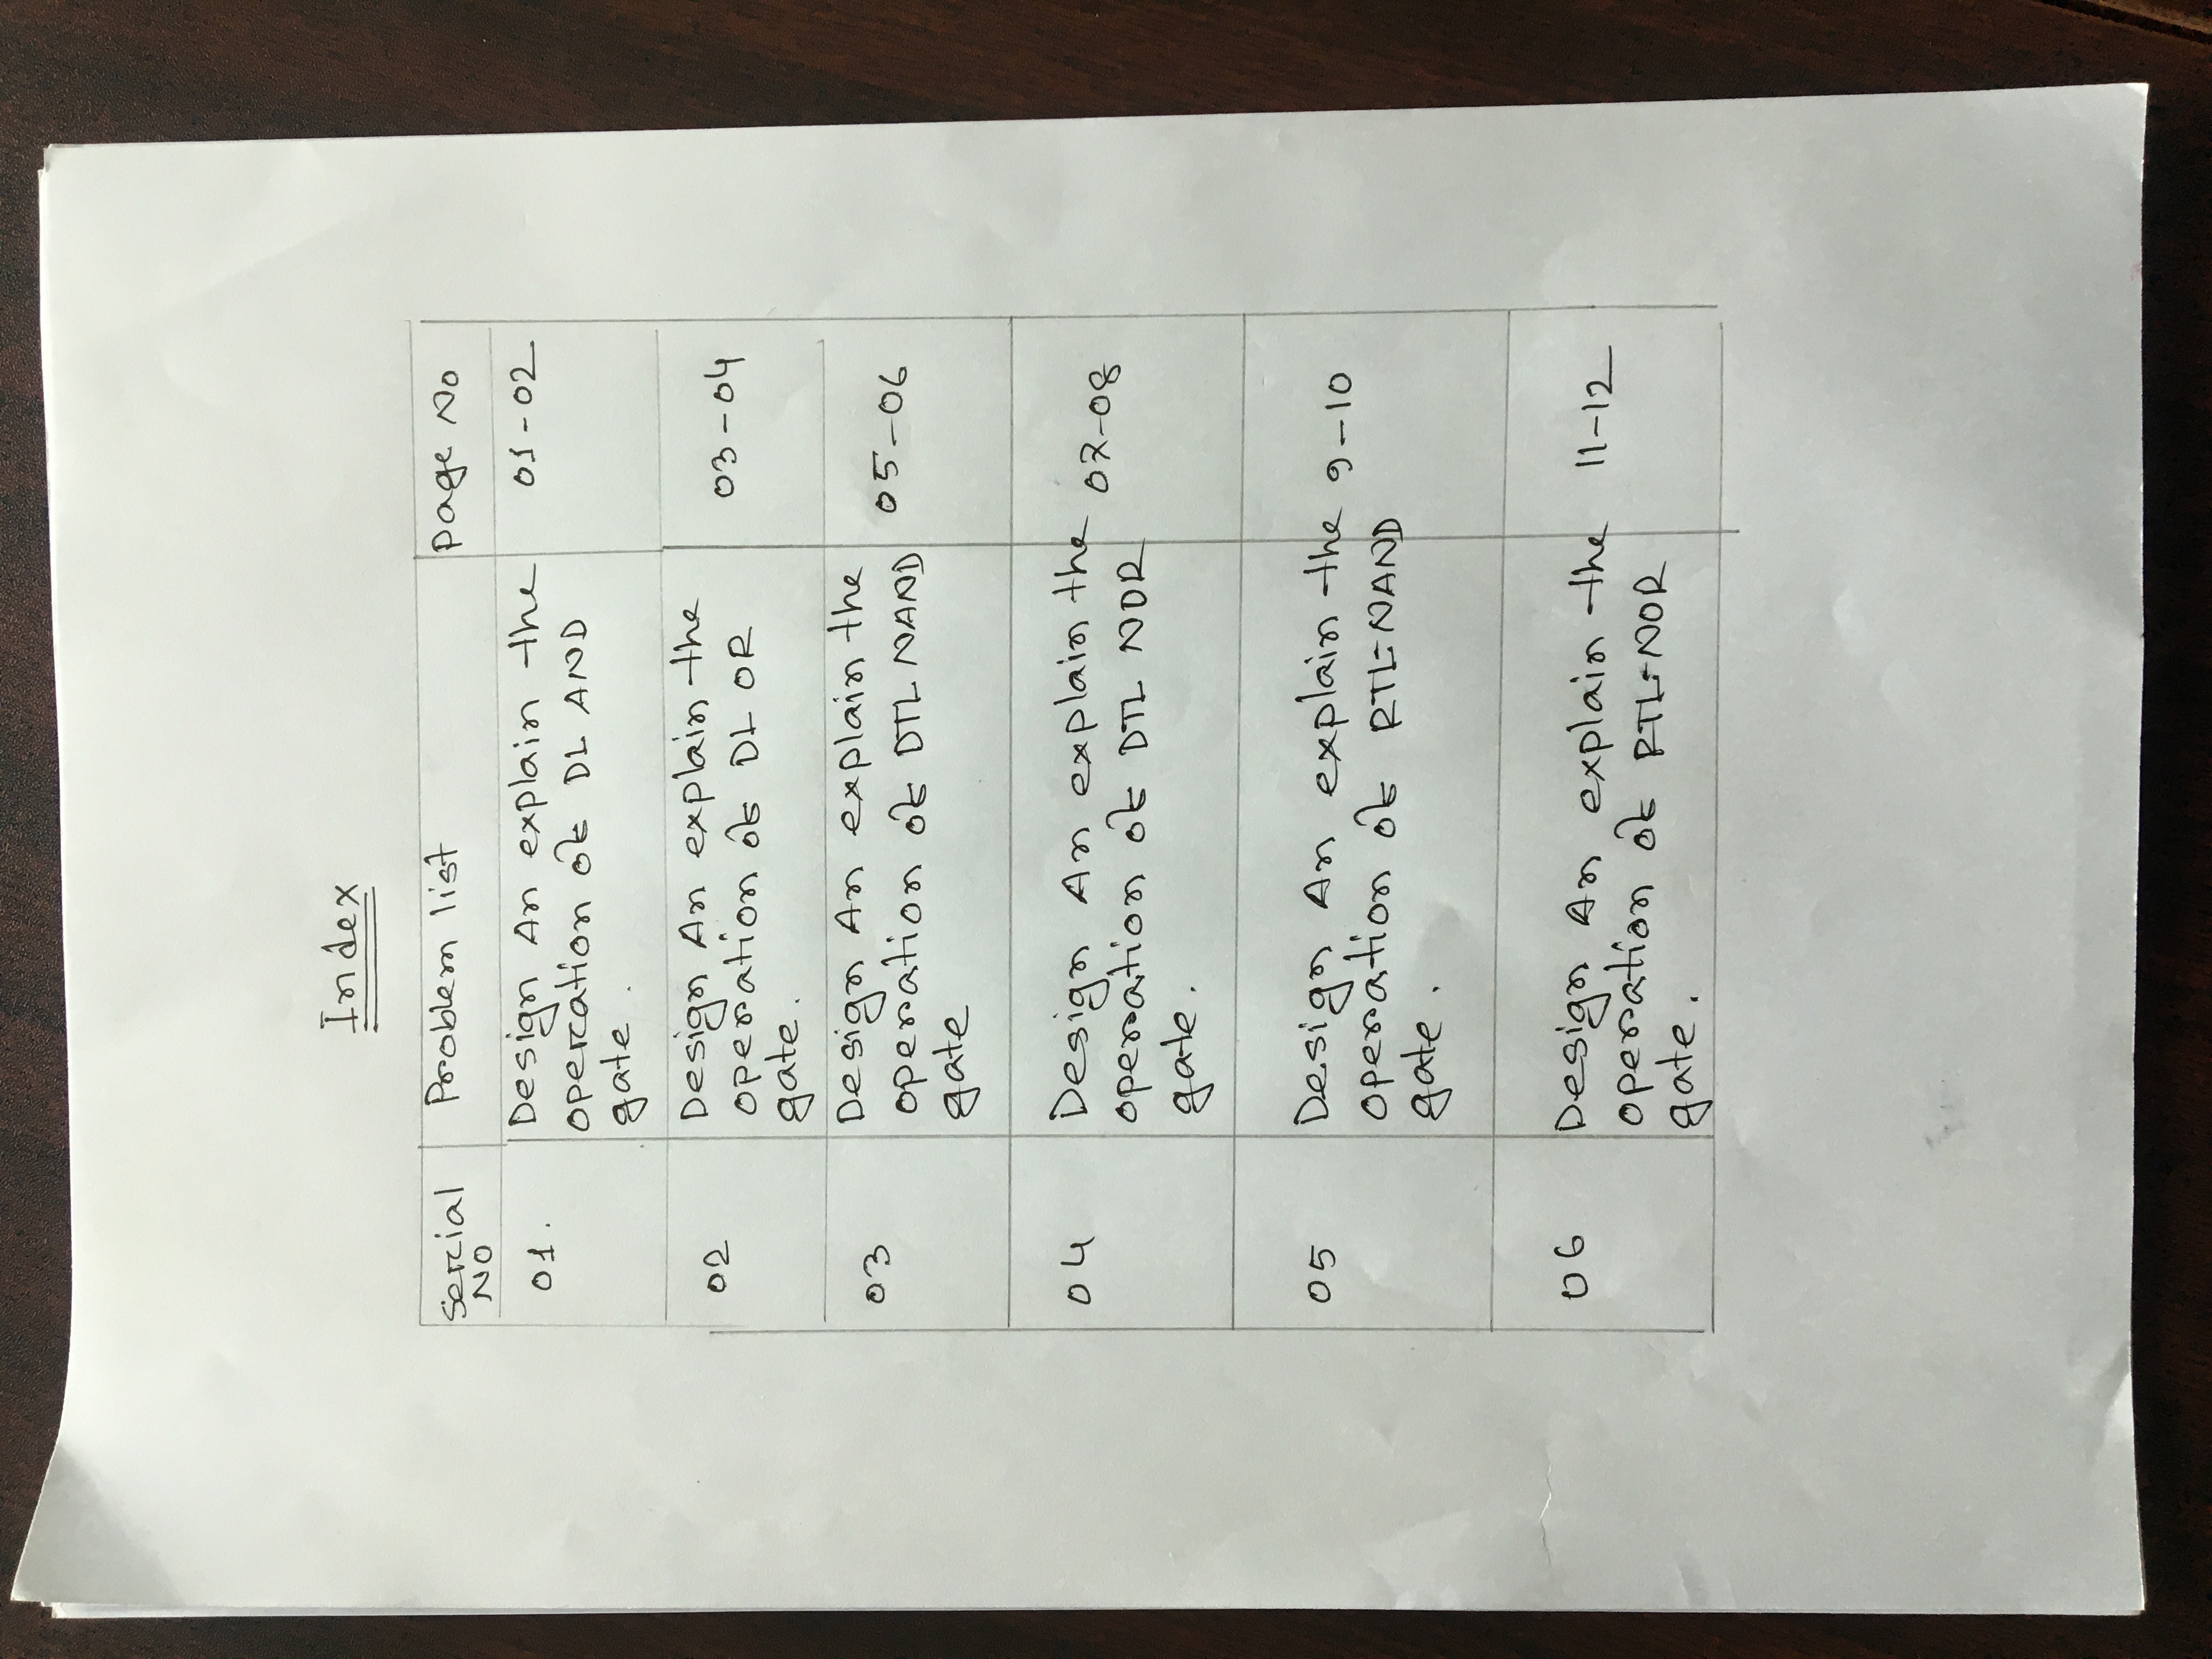 Index
Serial Problem list Page No
NO
01. Design An explain the 01-02
operation of DL AND
gate.
02 Design An explain the 03-04
operation of DL OR
gate.
03 Design An explain the 05-06
operation of DTL NAND
gate
04 Design An explain the 07-08
operation of DTL NOR
gate.
05 Design An explain the 9-10
operation of RTL-NAND
gate.
06 Design An explain the 11-12
operation of RTL-NOR
gate.